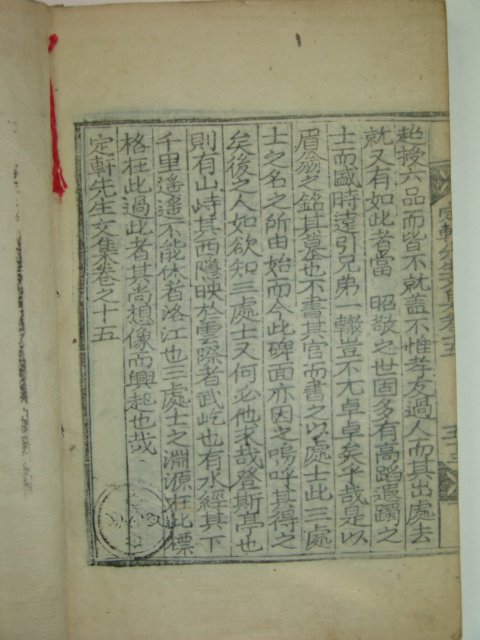 超授六品而皆不就蓋不惟孝友過人而其出處去
就又有如此者當 昭敬之世固多有高蹈遐躅之
士而國時遠引兄弟一轍豈不尤卓卓矣乎哉是以
眉翁之銘其墓也不書其官而書之以處士此三處
士之名之所由始而今此碑面亦因之嗚呼其得之
矣後之人如欲知三處士又何必他求哉登斯亭也
則有山峙其西隱映於雲際者武屹也有水經其下
千里遙遙不能休者洛江也三處士之淵源在此標
格在此過此者其尚想像而興起也哉
定軒先生文集卷之十五